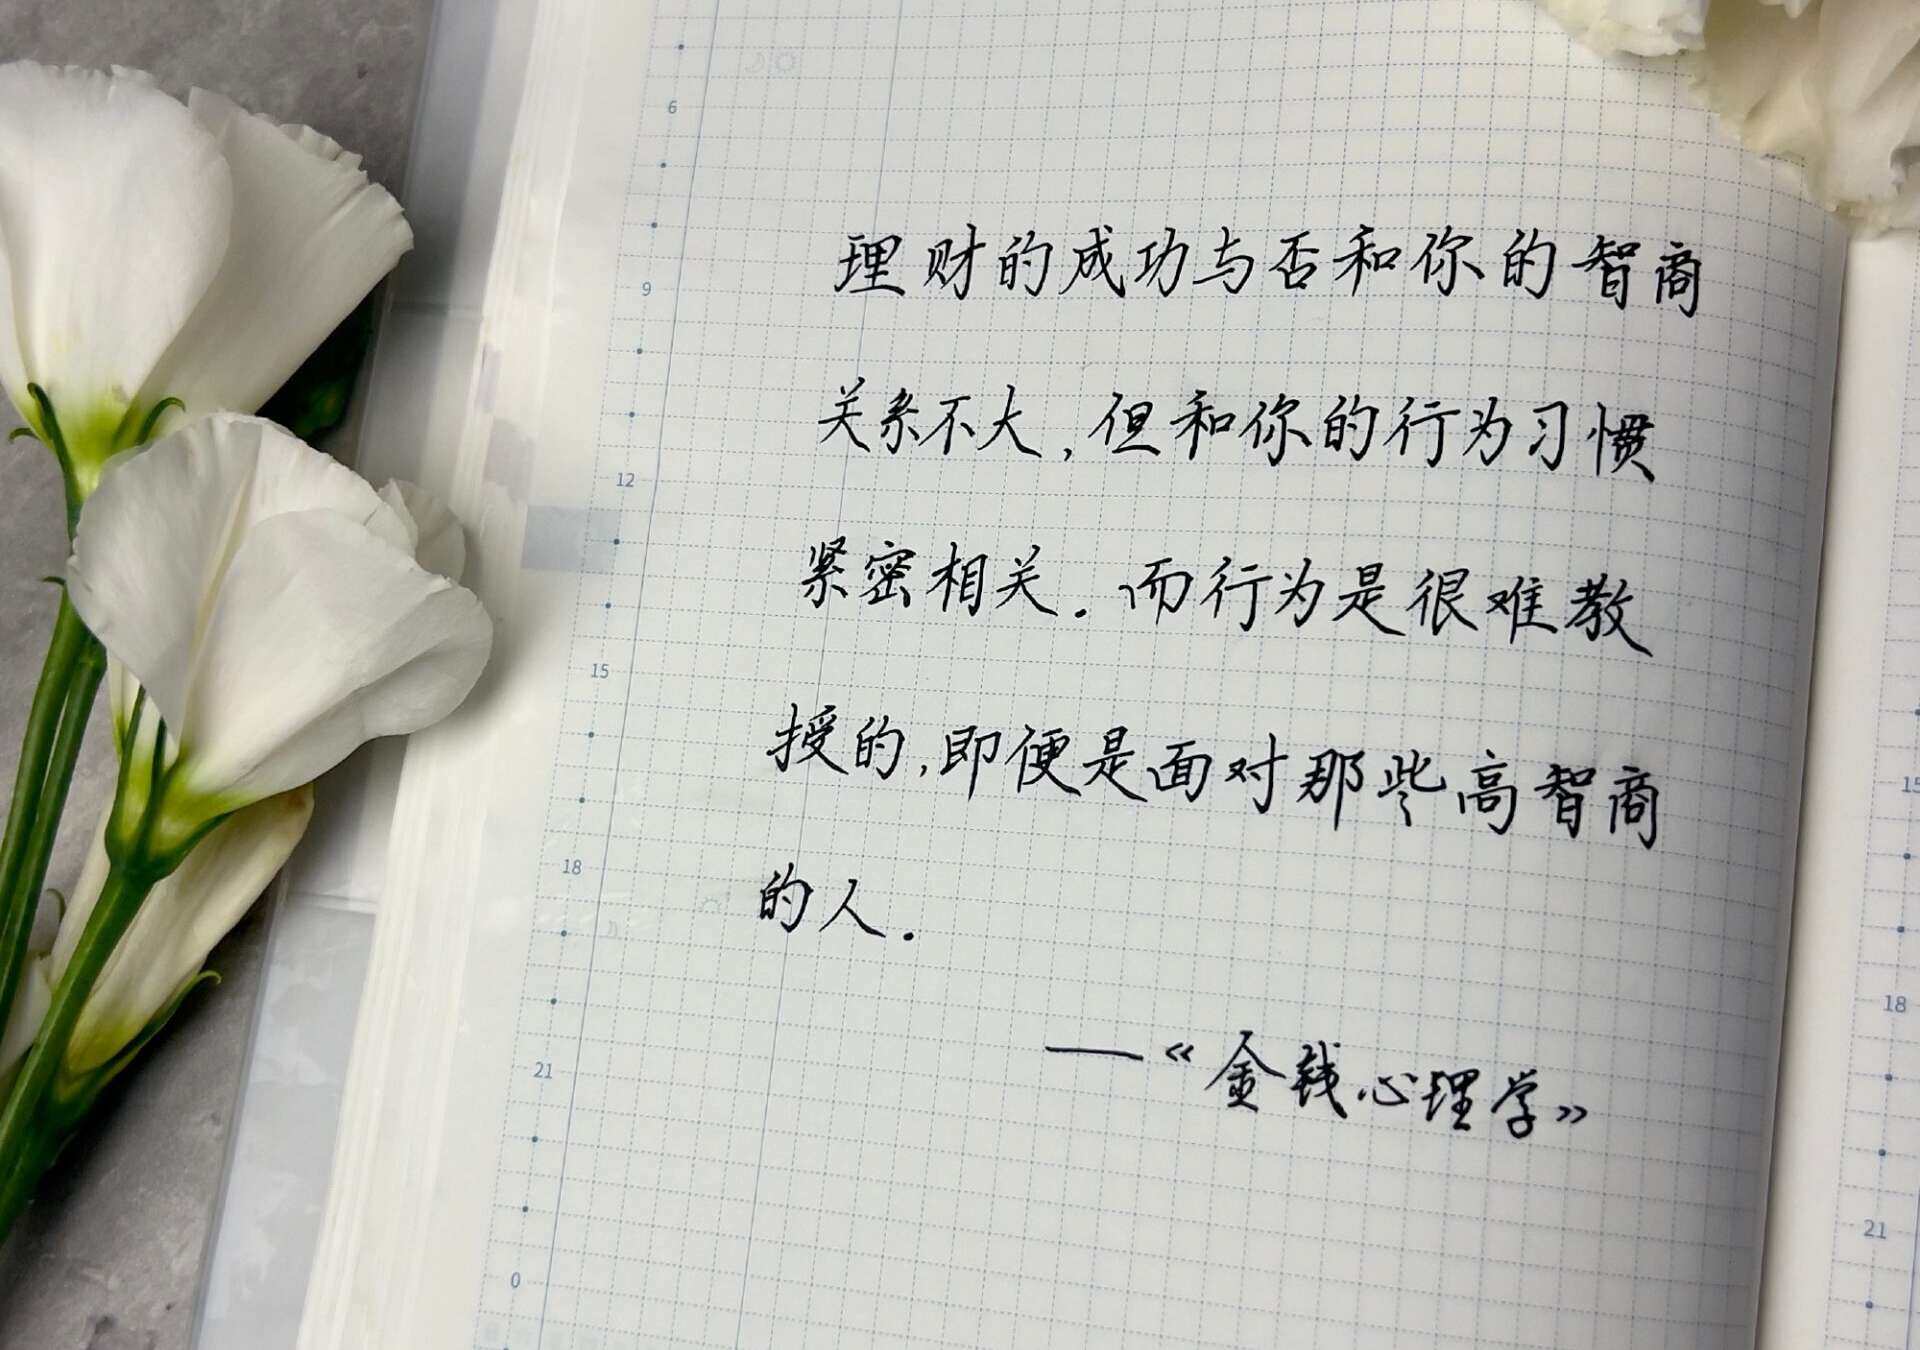 理财的成功与否和你的智商
关系不大,但和你的行为习惯
紧密相关.而行为是很难教
授的,即便是面对那些高智商
的人.
—《金钱心理学》
6
9
12
15
18
21
0
15
18
21